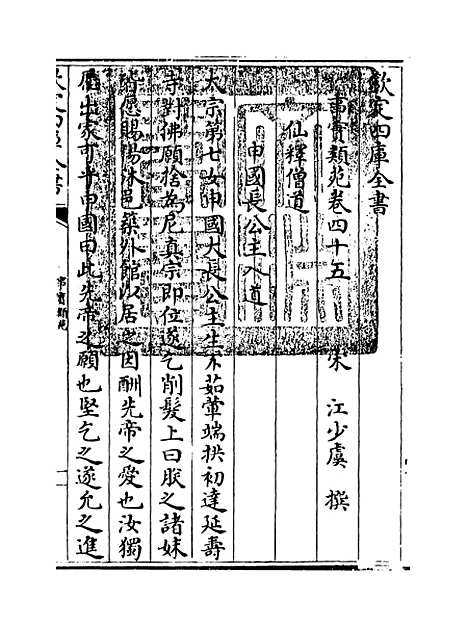 欽定四庫全書
事實類苑卷四十五
宋 江少虞 撰
仙釋僧道
申國長公主入道
太宗第七女申國大長公主生不茹葷端拱初達延壽
寺對佛願捨為尼真宗即位遂乞削髮上曰朕之諸妹
皆愿賜湯沐邑築外館以居之因酬先帝之愛也汝獨
願出家可乎申國曰此先帝之願也堅乞之遂允之進
欽定四庫全書
事實類苑
一